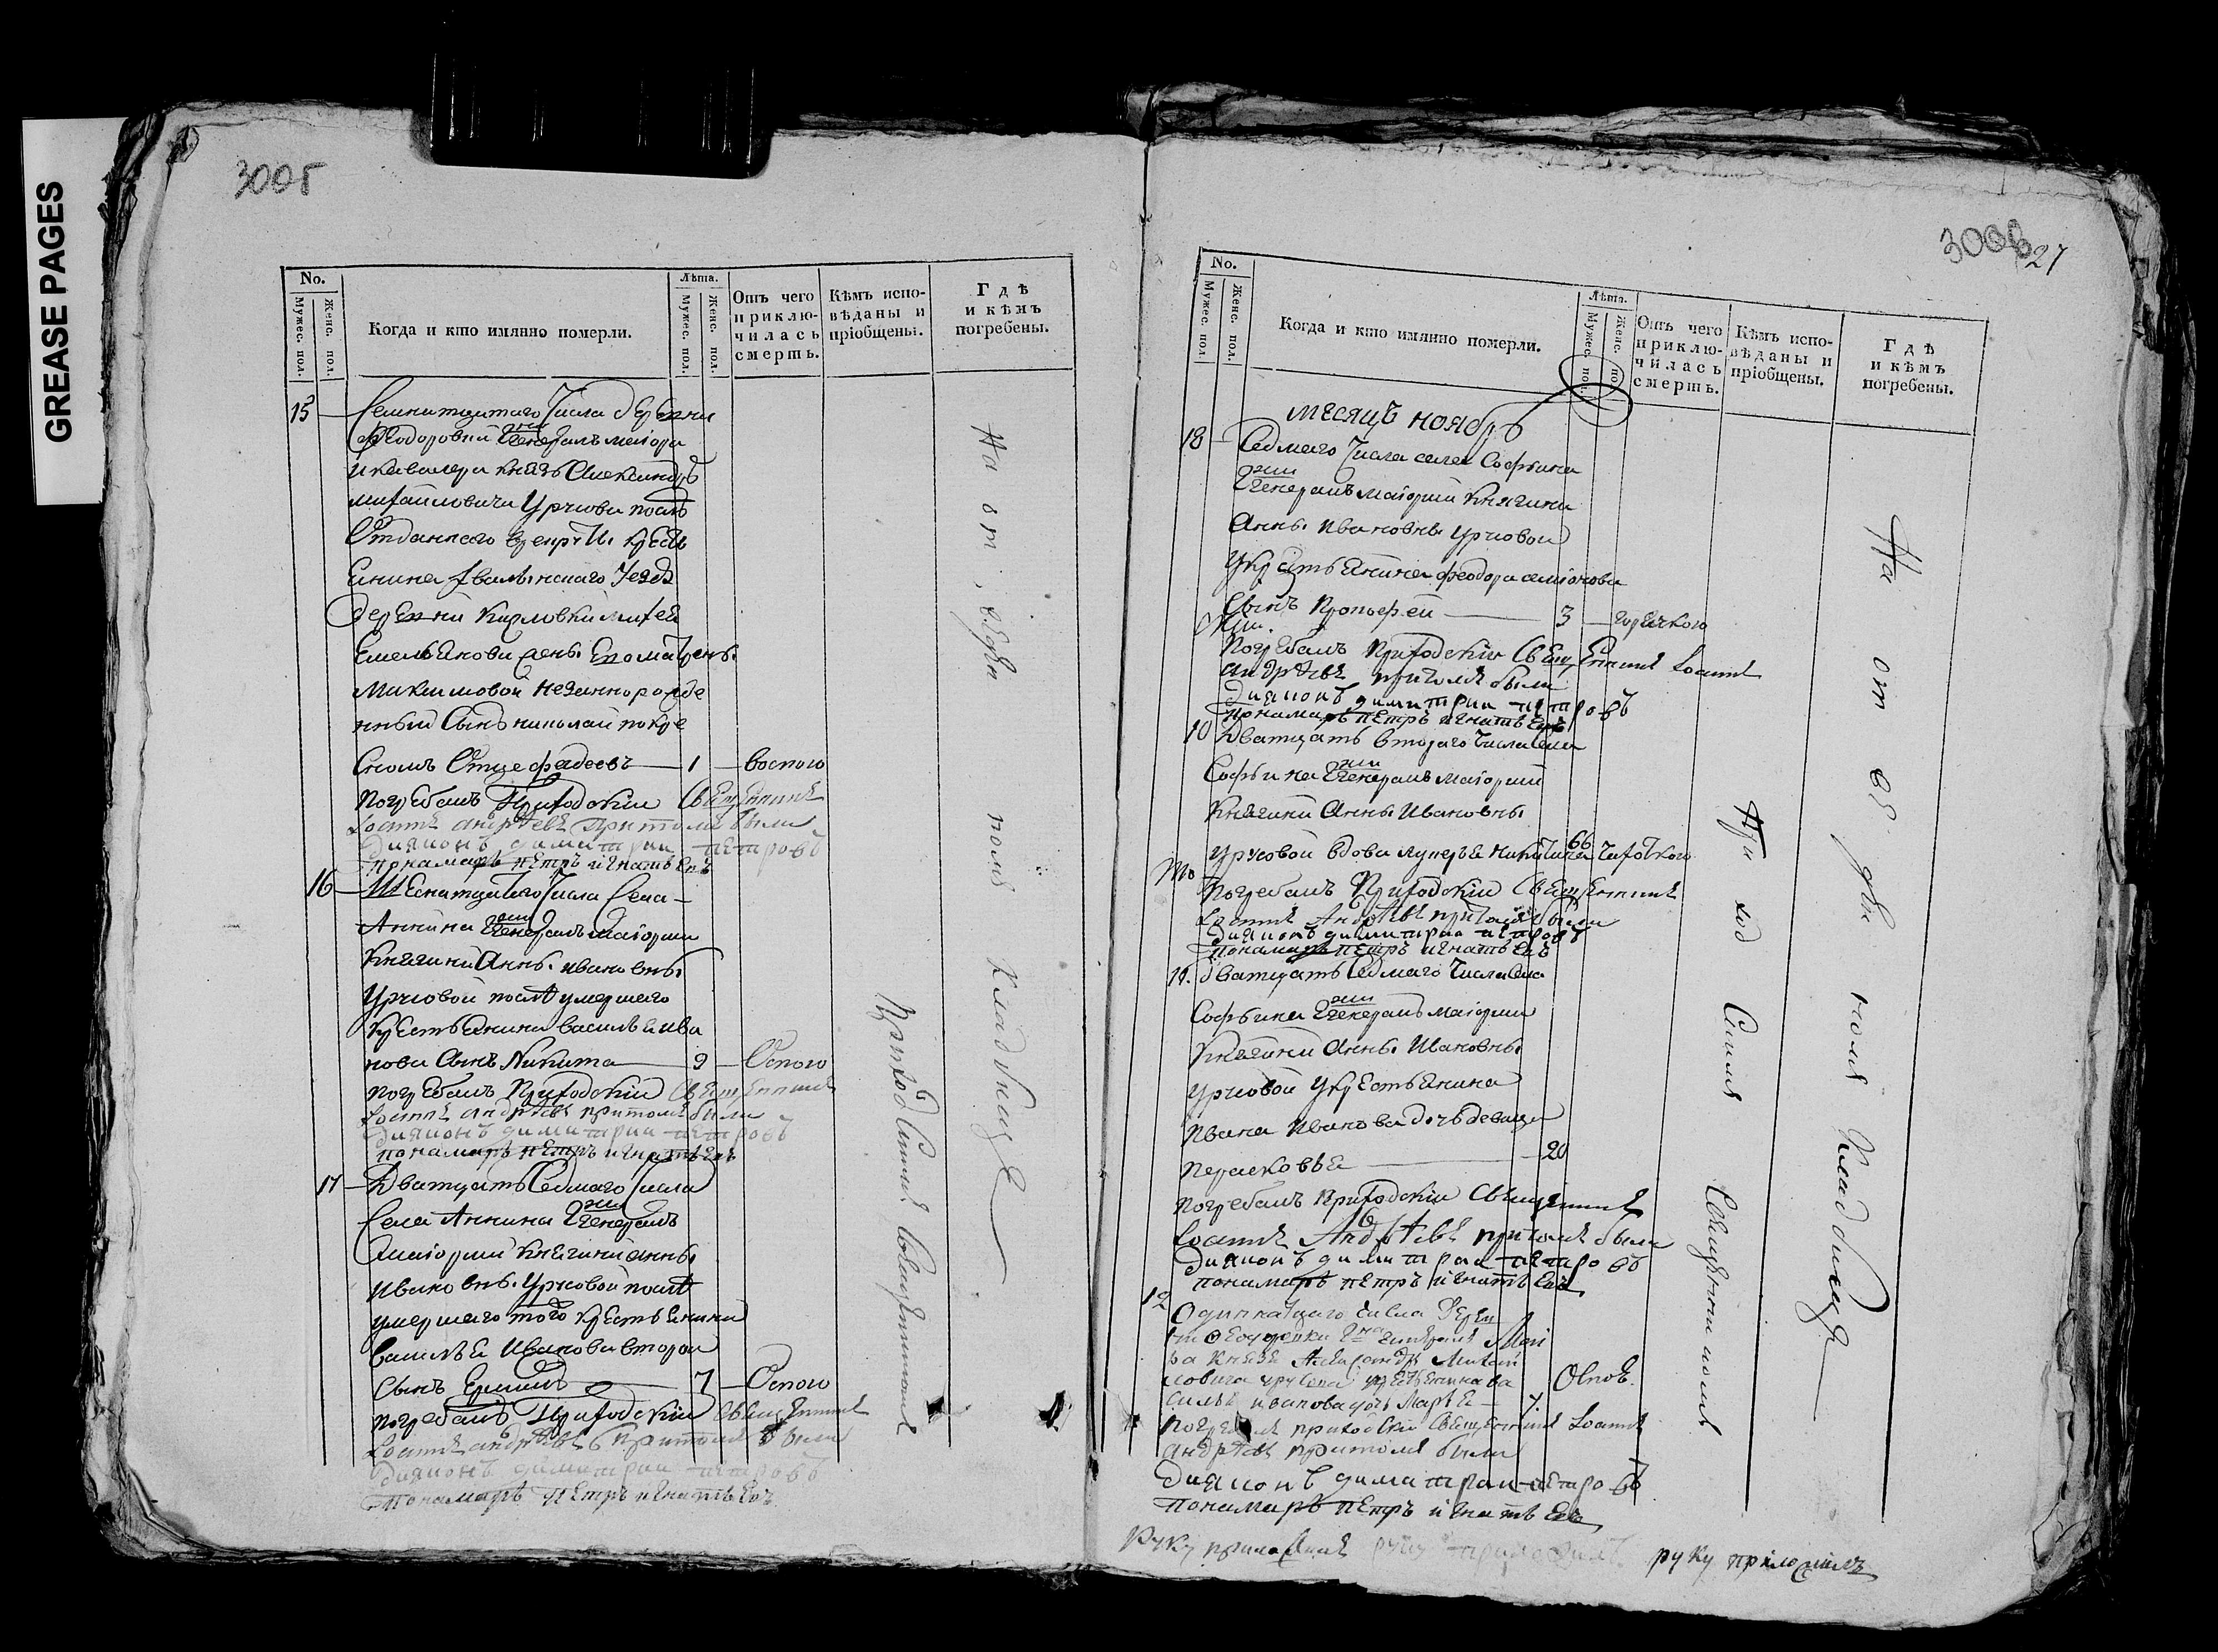 GREASE PAGES
300б
No.
Мужес. пол.
Женс. пол.
Когда и кто имянно померли.
Лѣта.
Мужес. пол.
Женс. пол.
Отъ чего приклю-чилась смерть.
Кѣмъ испо-вѣданы и пріобщены.
Гдѣ и кѣмъ погребены.
15 Семнатцатаго Числа деревни
Феодоровки Генералъ маіора
и кавалера князь Александръ
михаиловича Урусова послѣ
Отданнаго в рекруты кресть
Енина уезда
деревни михея
Емельянова
Максимовой
нный Сынъ николай по кре
Сномъ Отце фадеевъ 1 воспою
погребалъ Приходскій Священникъ
Іоаннъ андрѣевъ притомъ были
Дияконъ димитрии петровъ
понамарь петръ игнатьевъ
16 Шеснатцатаго Числа Села
Аннина Генералъ маіорши
Княгини Анны ивановны
Урусовой послѣ умершаго
Крестьянина василья ива
нова Сынъ Никита 9 Оспою
погребалъ Приходскій Священникъ
Іоаннъ андрѣевъ притомъ были
Дияконъ димитрии петровъ
понамарь петръ игнатьевъ
17 Дватцать Седмаго Числа
Села Аннина Генералъ
маіорши Княгини анны
Ивановны Урусовой послѣ
умершаго того крестьянина
василья Иванова второй
Сынъ Ермилъ 7 Оспою
погребалъ Приходскій Священникъ
Іоаннъ андрѣевъ притомъ были
Дияконъ димитрии петровъ
понамарь петръ игнатьевъ
Приходскимъ Священникомъ
На отведенномъ Кладбище
300в 27
No.
Мужес. пол.
Женс. пол.
Когда и кто имянно померли.
Лѣта.
Мужес. пол.
Женс. пол.
Отъ чего приклю-чилась смерть.
Кѣмъ испо-вѣданы и пріобщены.
Гдѣ и кѣмъ погребены.
месяцъ ноябрь
18 Седмаго Числа села Софьина
Генералъ маіорши Княгини
Анны Ивановны Урусовой
у крестьянина феодора
Сынъ Прокофей 3 горячкою
погребалъ Приходскій Священникъ Іоаннъ
андрѣевъ притомъ были
Дияконъ димитрии петровъ
понамарь петръ игнатьевъ
10 Дватцать втораго Числа села
Софьина Генералъ маіорши
Княгини Анны Ивановны
Урусовой вдова никитина 66 чахоткою
погребалъ Приходскій Священникъ
Іоаннъ Андрѣевъ притомъ были
Дияконъ димитрии петровъ
понамарь петръ игнатьевъ
11. дватцать Седмаго Числа села
Софьина Генералъ маіорши
Княгини Анны Ивановны
Урусовой у крестьянина
Ивана Иванова дочь девица
Перасковья 20
погребалъ Приходскій Священникъ
Іоаннъ Андрѣевъ притомъ были
Дияконъ димитрии петровъ
понамарь петръ игнатьевъ
12 Маи
ра Князя Александра Михаи
ловича Урусова у крестьянина ва
силья иванова дочь Марья 7
погребалъ приходскій Священникъ Іоаннъ
андрѣевъ притомъ были
Дияконъ димитрии петровъ
понамарь петръ игнатьевъ
Руку приложилъ руку приложилъ руку приложилъ
Приходскимъ Священникомъ
На отведенномъ Кладбище